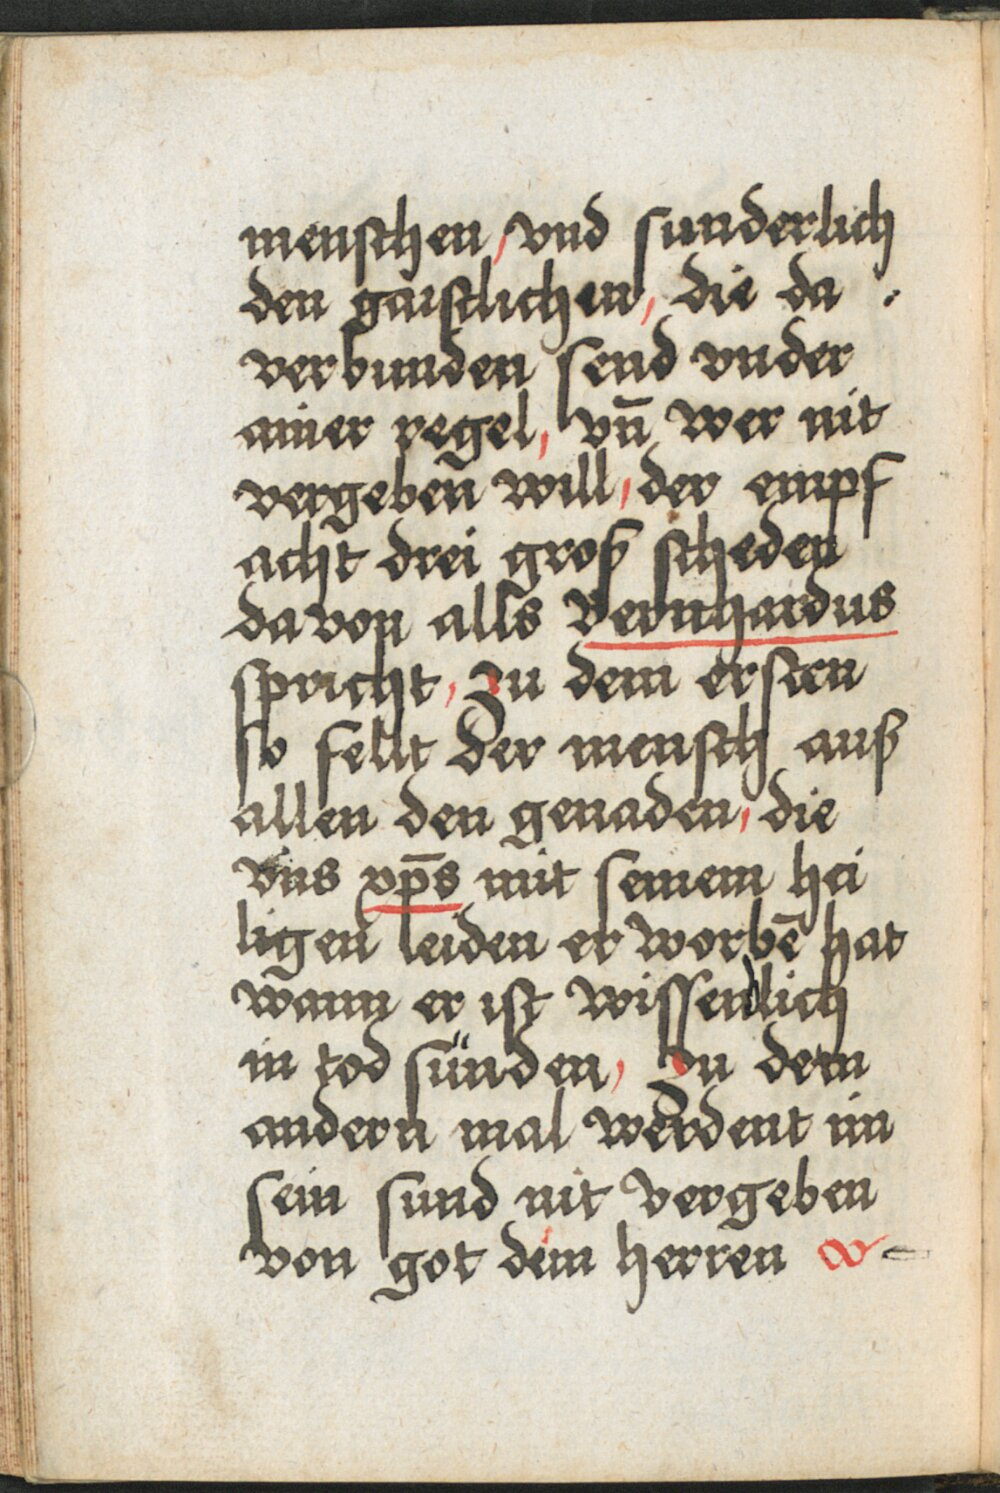 menschen, vnd sunderlich
den gaistlichen, die da .
verbunden send vnder
ainer regel, vn̄ wer nit
vergebeñ will, der empf
acht drei groß scheden
da von alls Bernhardus
spricht, zu dem ersten
so fellt der mensch auß
allen den genaden, die
vns xp̄s mit seinem hei
ligen leiden er worbē hat
wann er ist wissendlich
in tod sünden, Zu dem
andern mal werdent im
sein sund nit vergeben
von got dem herren